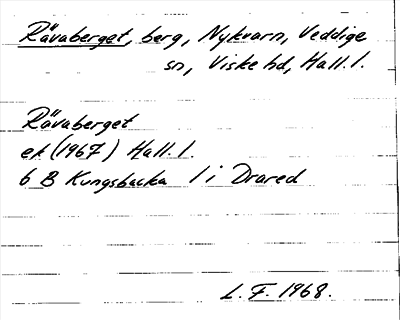 Rävaberget, berg, Nykvarn, Veddige
sn, Viske hd, Hall. l.
Rävaberget
ek (1967) Hall. l.
6 B Kungsbacka 1 i Drared
L. F. 1968.